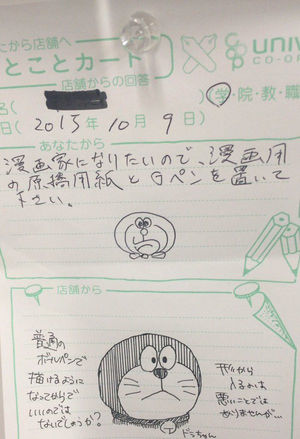 なたから店舗へ
とことカード
UNIV
CO-OP
店舗からの回答
名(
)学・院・教・職
日(2015年10月9日)
あなたから
漫画家になりたいので、漫画用
の原稿用紙とGペンを置いて
下さい。
店舗から
普通の
ボールペンで
描けるように
なってからで
いいのでは
ないでしょうか?
から
入るのは
悪いことでは
ありませんが…
ドラちゃん